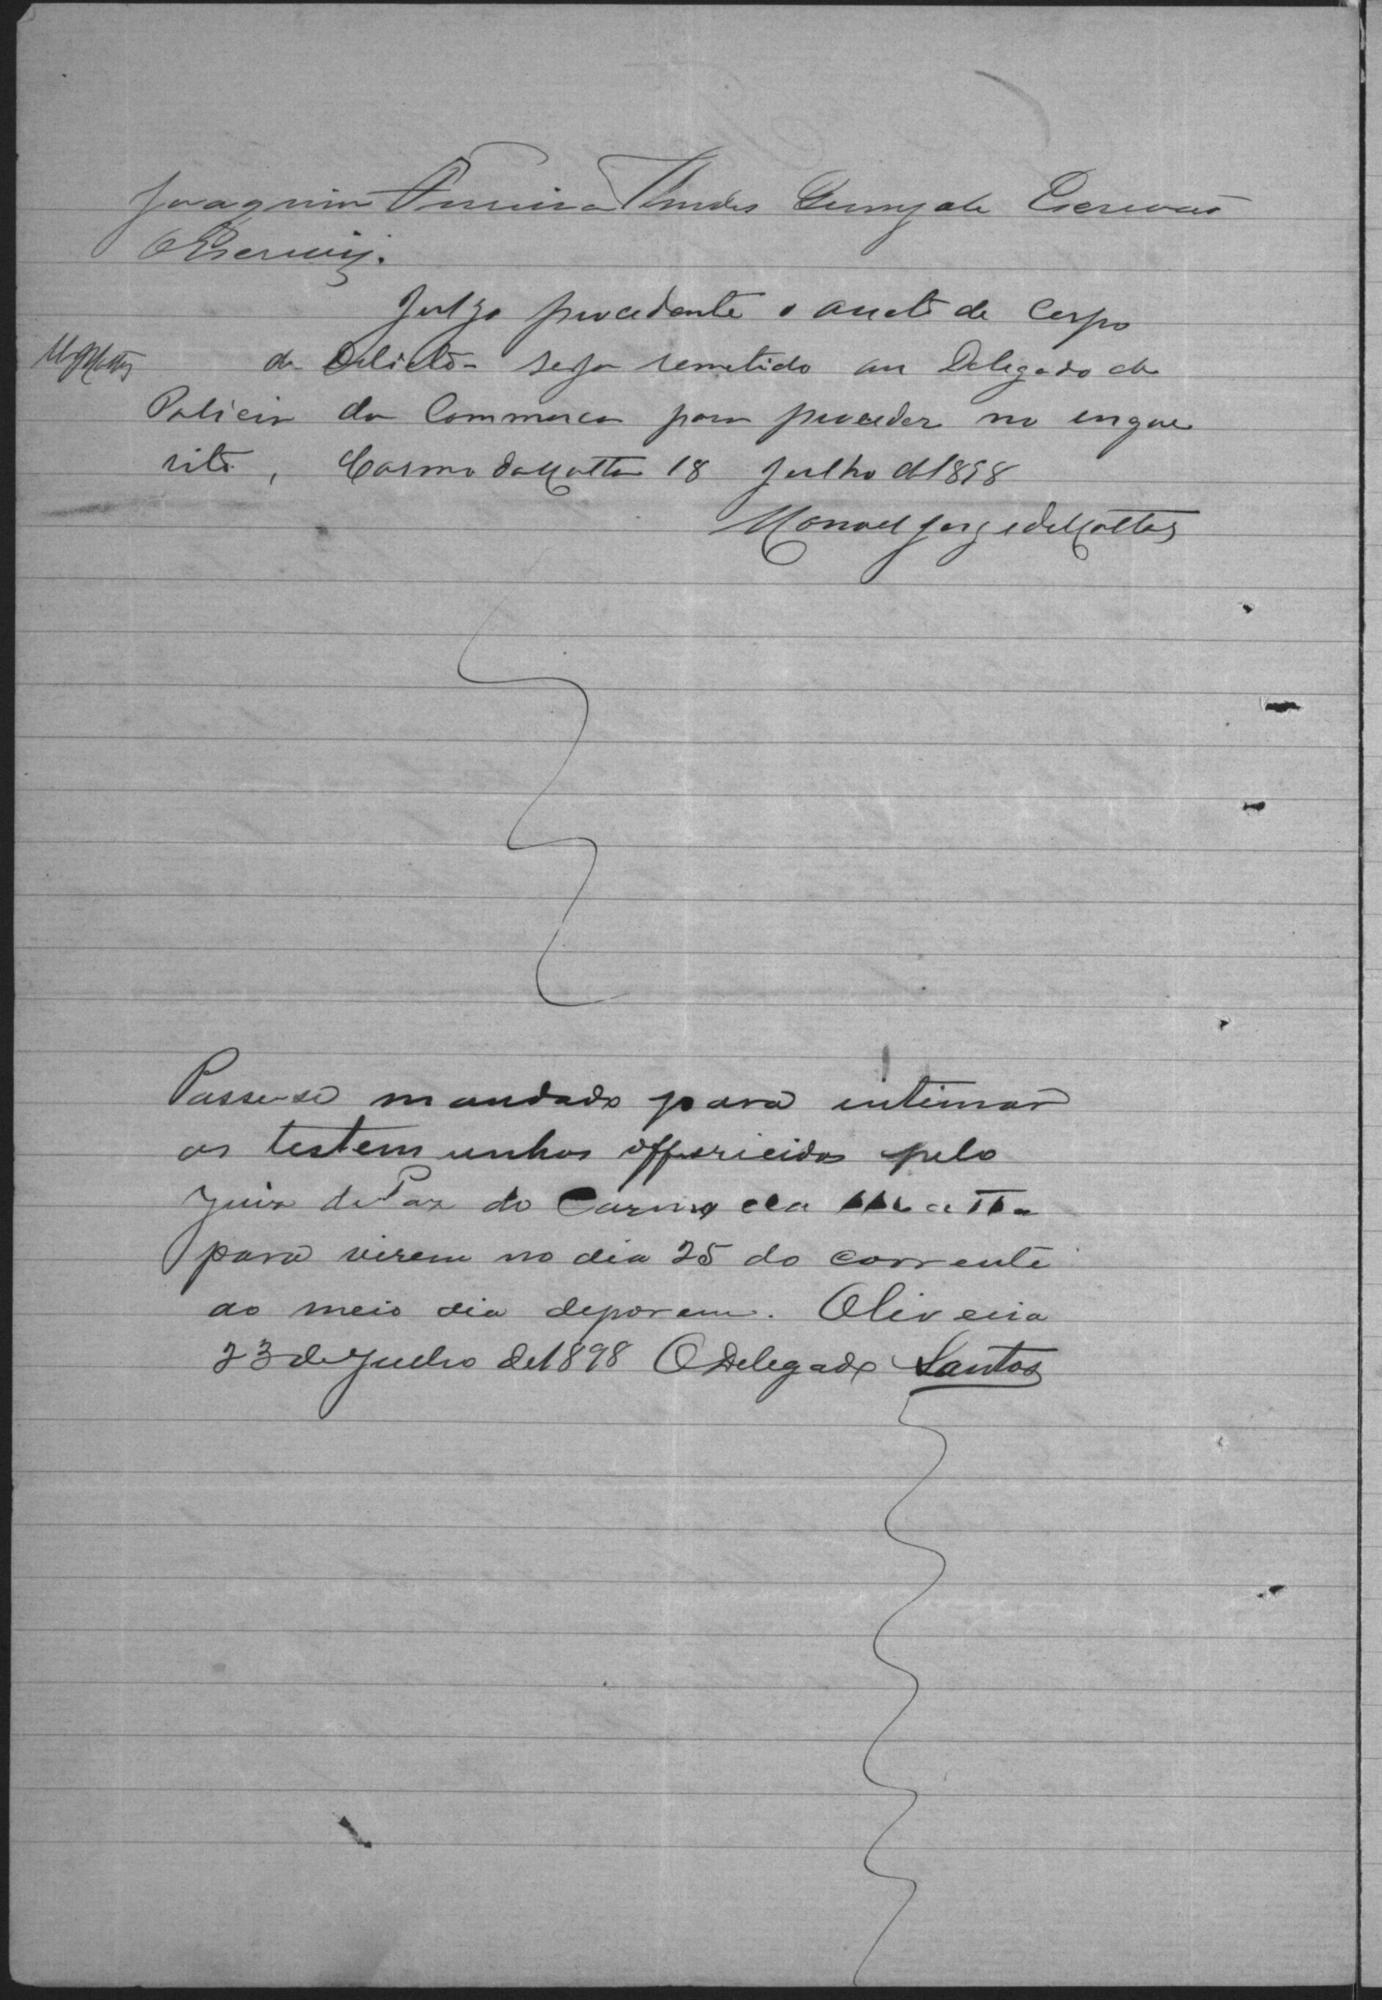 Joaquim Escrivão
Escrevij.
Julgo procedente o aucto de Corpo
de Delicto - seja remetido au Delegado de
Policia da Commarca para proceder no inque
rito, Carmo da Matta 18 Julho d 1898
Manoel Jorge de Mattos
Passe-se mandado para intimar
as testemunhas offericidas pelo
Juiz de Paz do Carmo da Matta
para virem no dia 25 do corrente
ao meio dia deporem. Oliveira
23 de Julho de 1898 O Delegado Santos